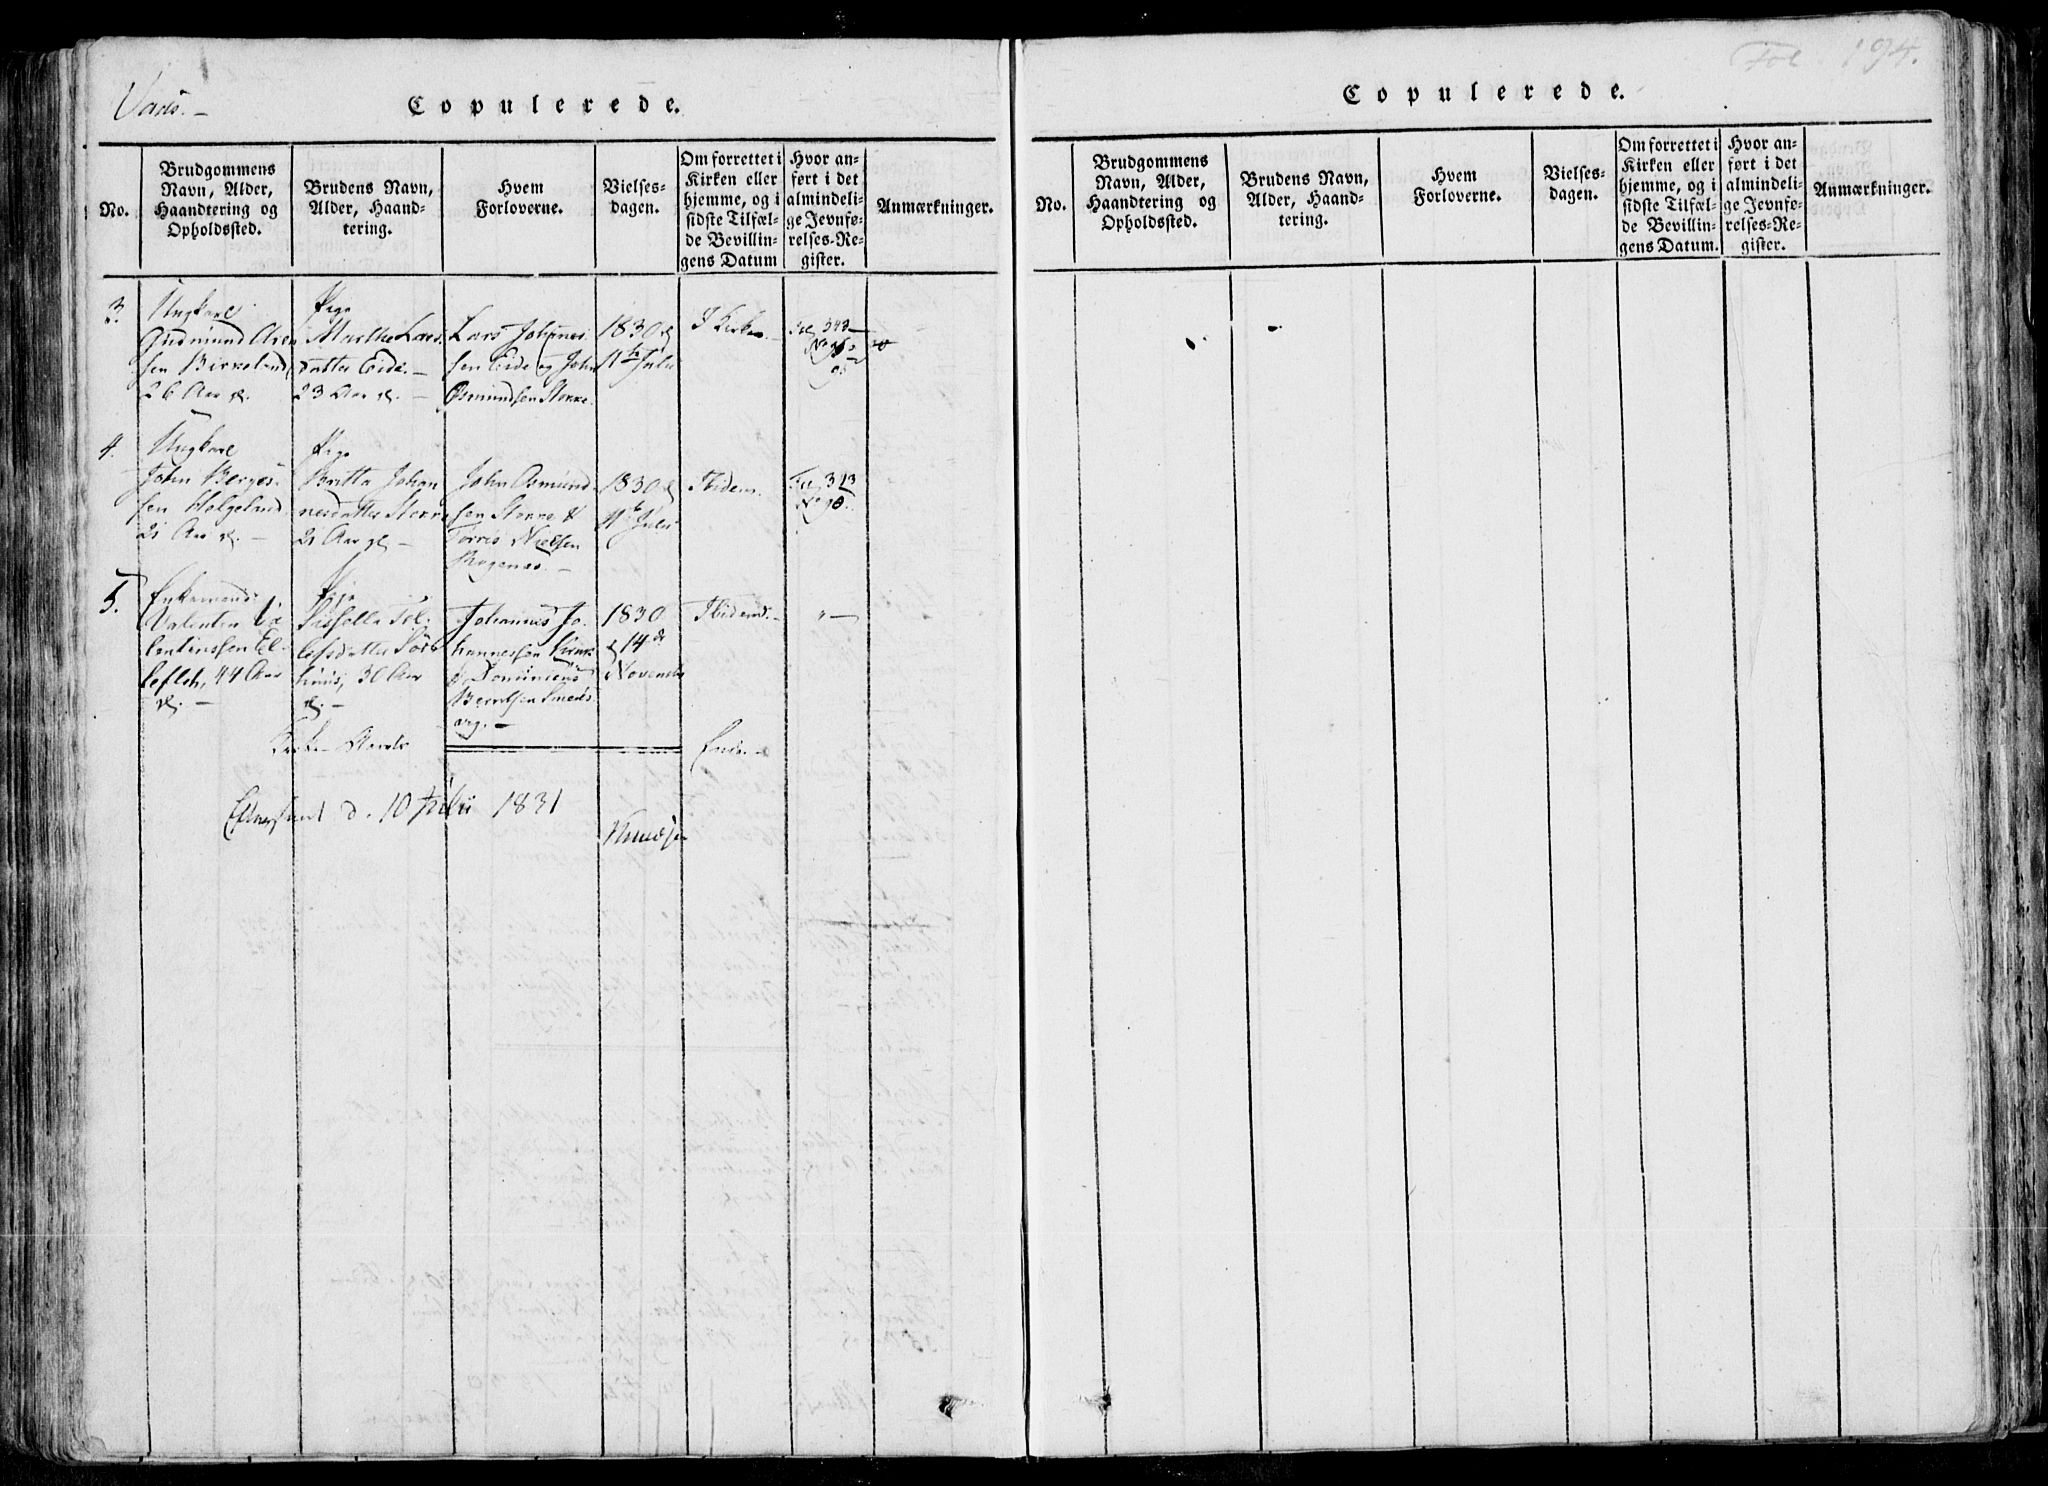 Fol. 194.
Vads.
Copulerede.
No.
Brudgommens
Navn, Alder,
Haandtering og
Opholdssted.
Brudens Navn,
Alder, Haand-
tering.
Hvem
Forloverne.
Vielses-
dagen.
Om forrettet i
Kirken eller
hjemme, og i
sidste Tilfæl-
de Bevillin-
gens Datum
Hvor an-
ført i det
almindeli-
ge Jevnfø-
relses-Re-
gister.
Anmærkninger.
3.
Ungkarl
Gudmund
sen Birkeland
26 Aar gl.
Pige
Marthe Lars
datter Eide. —
23 Aar gl. —
Lars Johannes
sen Eide og John
Osmundsen Stokke.
1830 d
11te Julii
I Kirken
Fol 343
4.
Ungkarl
John Børges
sen Helgeland
21 Aar gl. —
Pige
Britta Johan
nesdatter Stokke
21 Aar gl —
John Osmund
sen Stokke &
Torris Nielsen
1830 d
11te Julii
Ibidem.
Fol 343
No 90.
5.
Enkemand
Valentin Va
lentinssen El-
44 Aar
gl. —
Pige
datter
30 Aar
gl. —
Johannes Jo-
hannessen
1830
d 14de
November
Ibidem. —
" —
Kirke
Efterseet d. 10 Julii 1831
Knudsen
Copulerede.
No.
Brudgommens
Navn, Alder,
Haandtering og
Opholdssted.
Brudens Navn,
Alder, Haand-
tering.
Hvem
Forloverne.
Vielses-
dagen.
Om forrettet i
Kirken eller
hjemme, og i
sidste Tilfæl-
de Bevillin-
gens Datum.
Hvor an-
ført i det
almindeli-
ge Jevnfø-
relses-Re-
gister.
Anmærkninger.